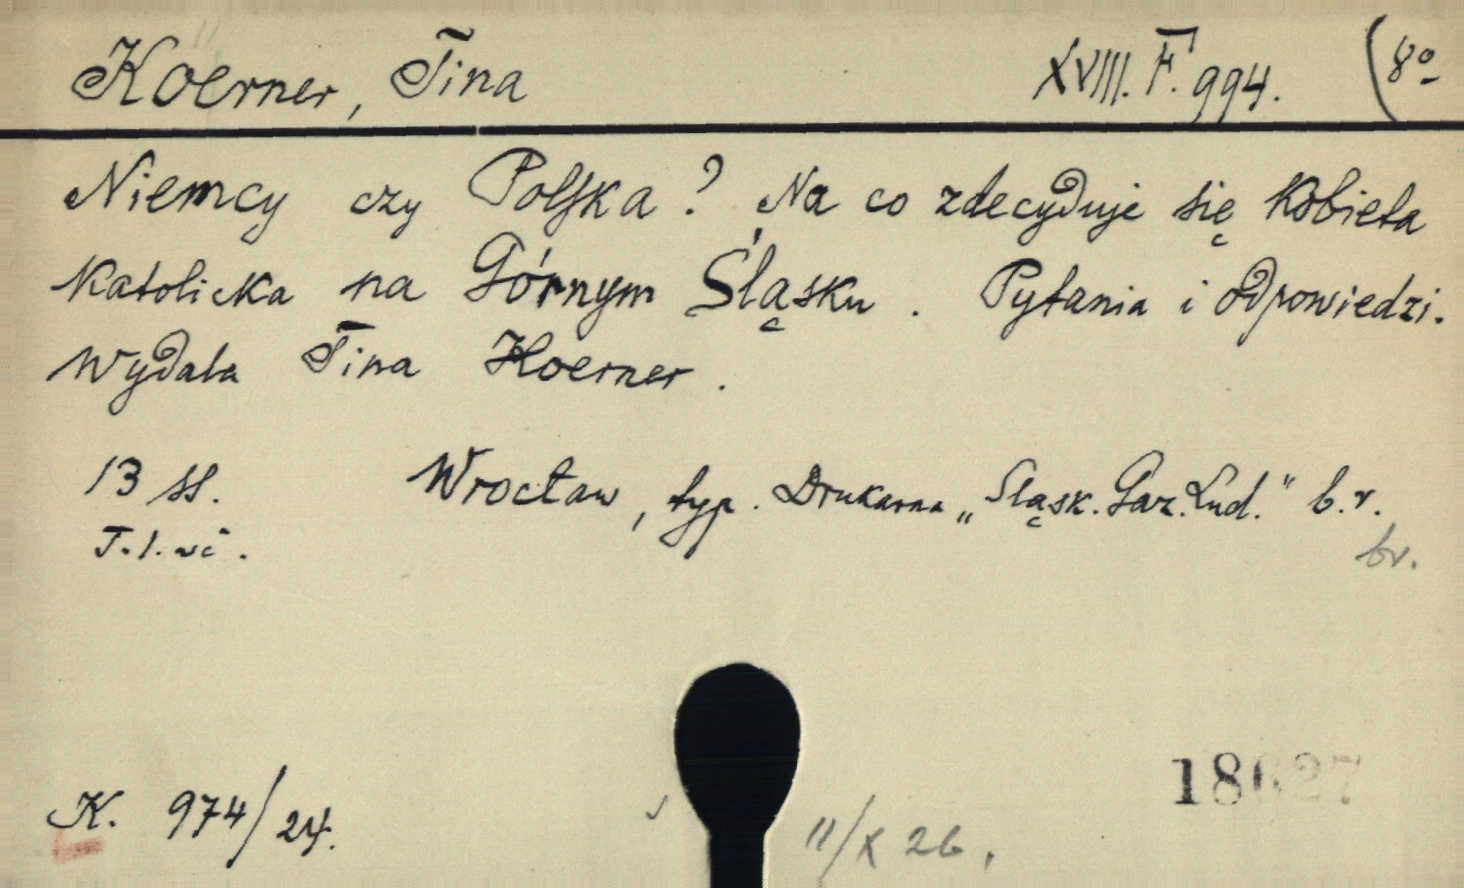 Koerner, Tina XVIII. F. 994. (8º
Niemcy czy Polska? Na co zdecyduje się kobieta
katolicka na Górnym Śląsku. Pytania i odpowiedzi.
Wydała Tina Koerner.
13 ss. Wrocław, typ. Drukarna „Śląsk. Gaz. Lud.” b. r.
br.
K. 974/24.
11/X 26.